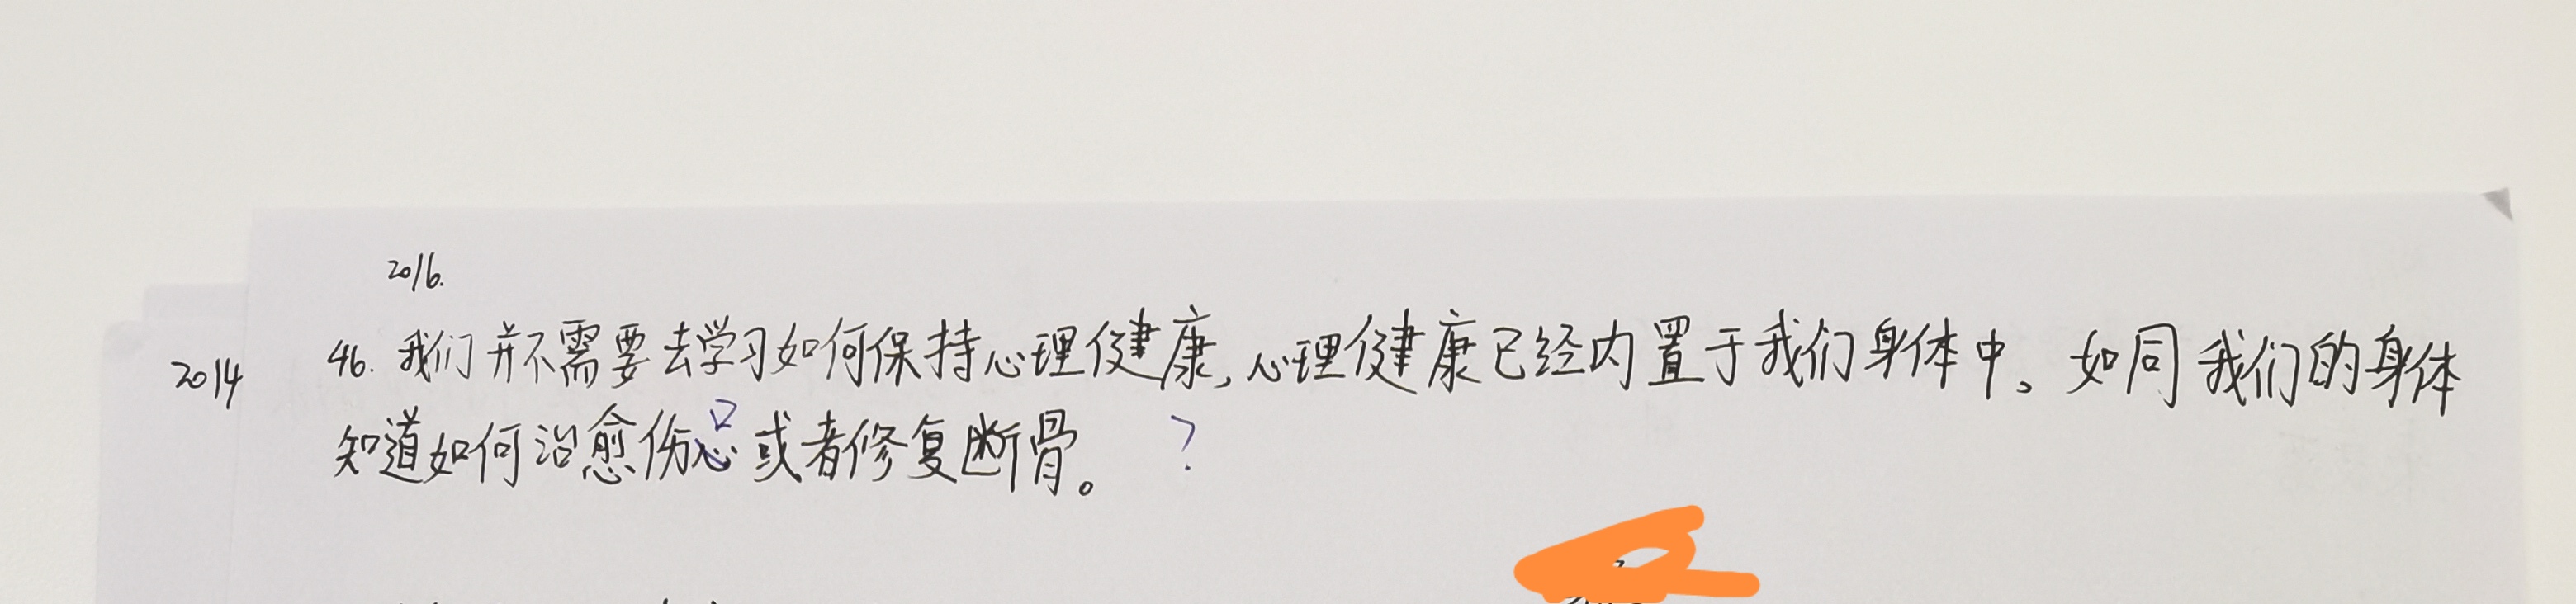 2016.
2014
46. 我们并不需要去学习如何保持心理健康,心理健康已经内置于我们身体中。如同我们的身体
知道如何治愈伤口或者修复断骨。 ?